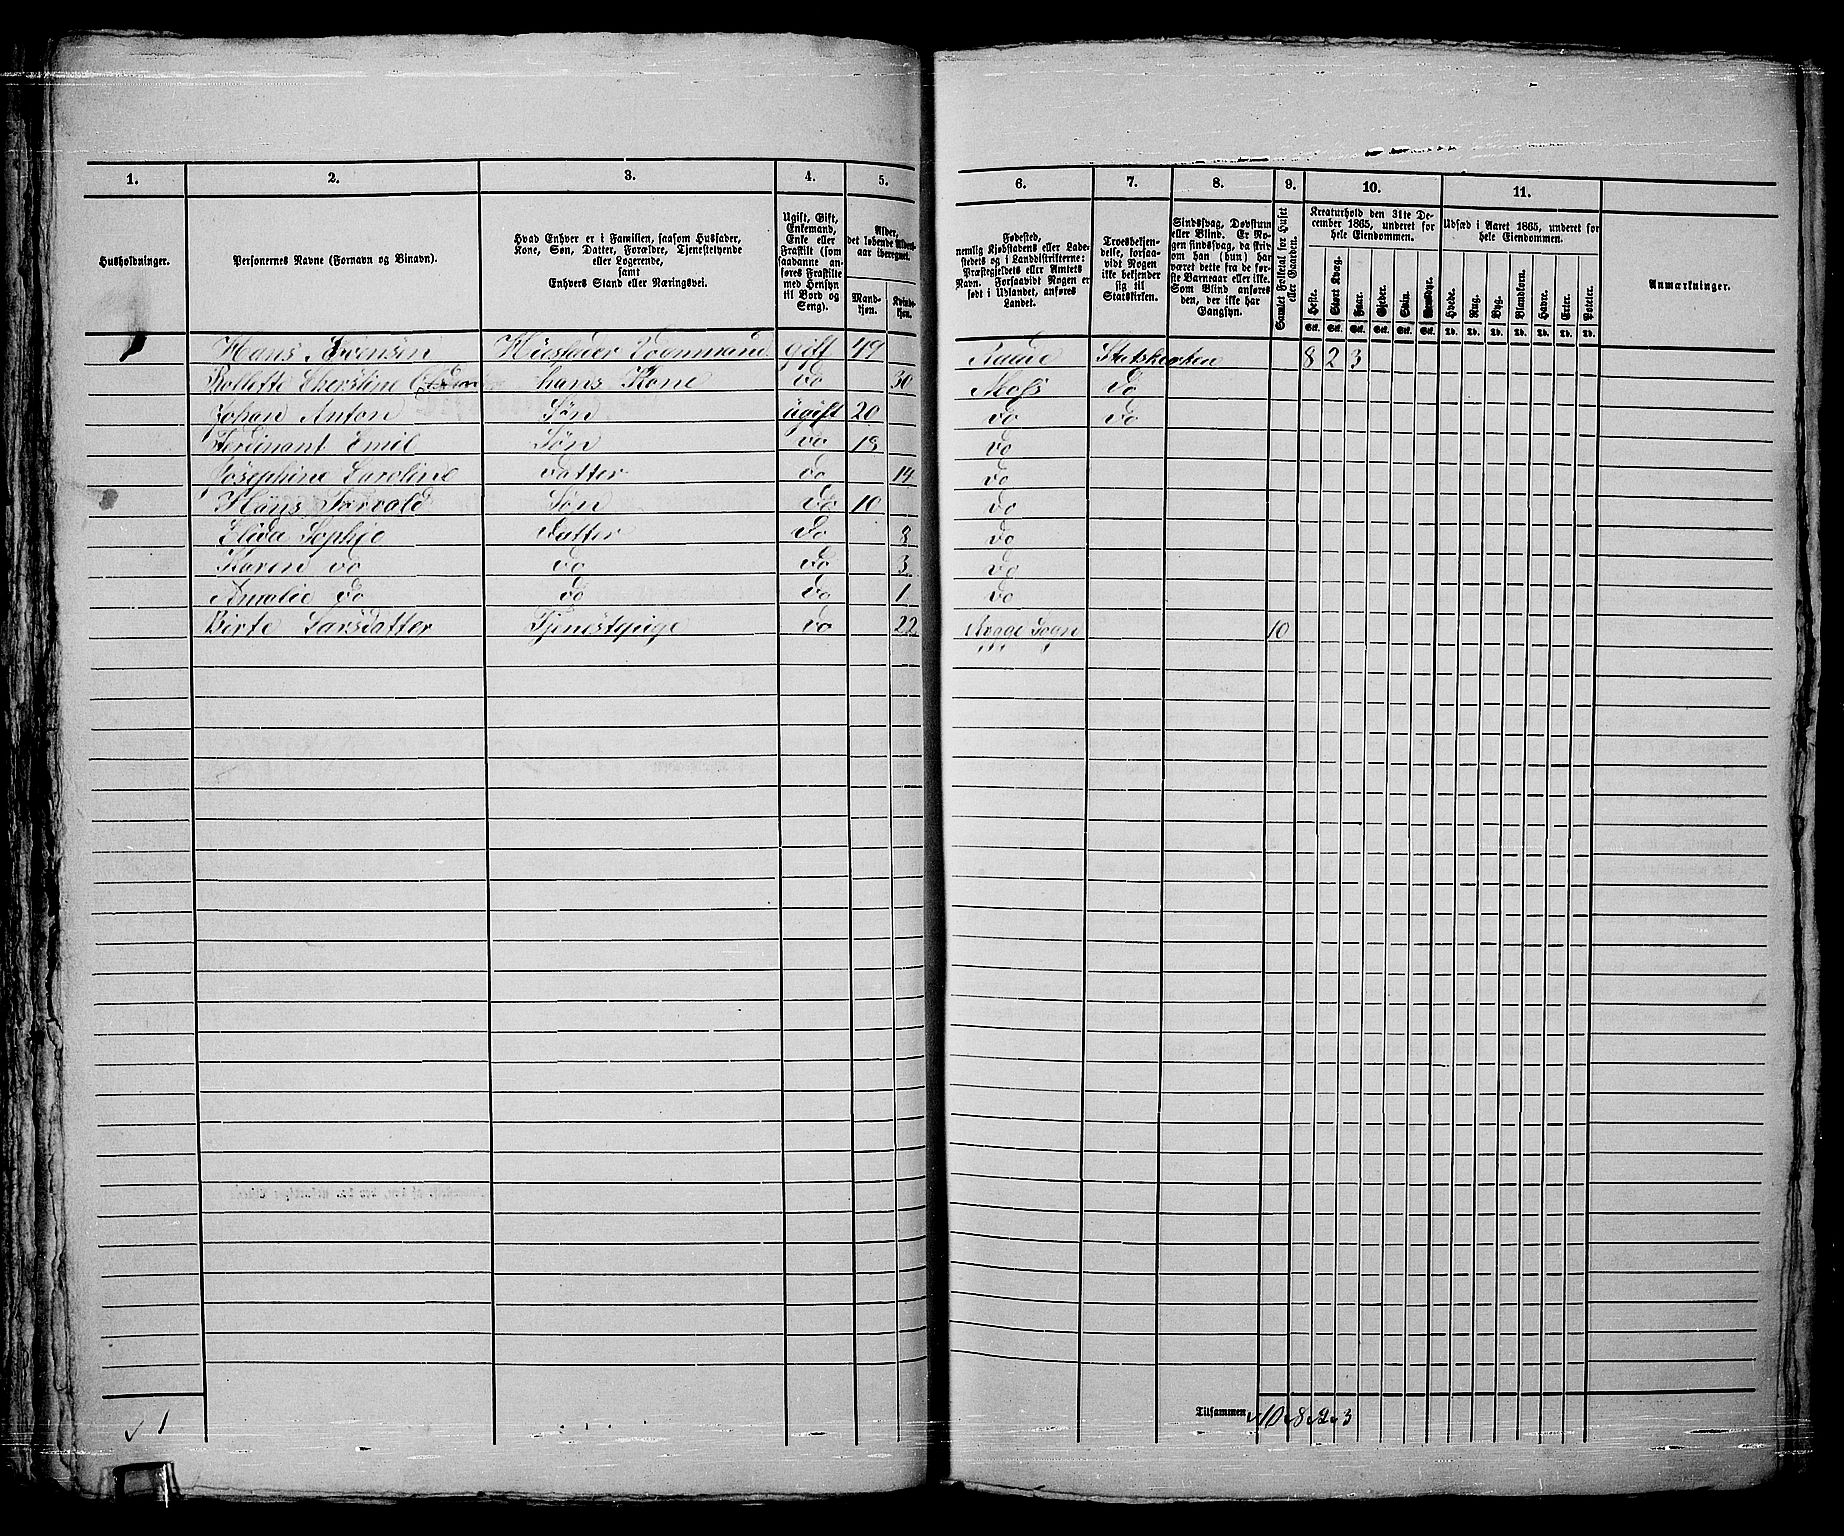 1. 2. 3. 4. 5. 6. 7. 8. 9. 10. 11.
Husholdninger.
Personernes Navne (Fornavn og Binavn).
Hvad Enhver er i Familien, saasom Husfader,
Kone, Søn, Datter, Forældre, Tjenestetyende
eller Logerende,
samt
Enhvers Stand eller Næringsvei.
Ugift, Gift,
Enkemand,
Enke eller
Fraskilt (som
saadanne anføres
Fraskilte
med Hensyn
til Bord og
Seng).
Alder,
det løbende Alders-
aar iberegnet.
Mand-
kjøn.
Kvinde-
kjøn.
Fødested,
nemlig Kjøbstadens eller Lade-
stedets og i Landdistrikterne:
Præstegjeldets eller Amtets
Navn. Forsaavidt Nogen er
født i Udlandet, anføres
Landet.
Troesbekjen-
delse, forsaa-
vidt Nogen
ikke bekjender
sig til
Statskirken.
Sindssvag, Døvstum
eller Blind. Er No-
gen sindssvag, da skriv
om han (hun) har
været dette fra de før-
ste Barneaar eller ikke.
Som Blind anføres
den, der ikke har
Gangsyn.
Samlet Folketal for Huset
eller Gaarden.
Kreaturhold den 31te De-
cember 1865, underet for
hele Eiendommen.
Heste. Stort Kvæg. Faar. Gjeder. Sviin. Rensdyr.
Udsæd i Aaret 1865, underet for
hele Eiendommen.
Hvede. Rug. Byg. Blandkorn. Havre. Erter. Poteter.
Anmærkninger.
Hans Svensen Husfader Vognmand gift 49 Raade Statskirken 8 2 3
Kone do 30 Moss do
Johan Anton Søn ugift 20 do do
Ferdinant Emil Søn do do
Josephine Caroline Datter do 14 do
Hans Torvald Søn do 10 do
Elida Sophie Datter do 8 do
Karen do do do 3 do
Amalie do do do 1 do
Birte Larsdatter Tjenestepige do 22 Sogn 10
1 Tilsammen 10 8 2 3